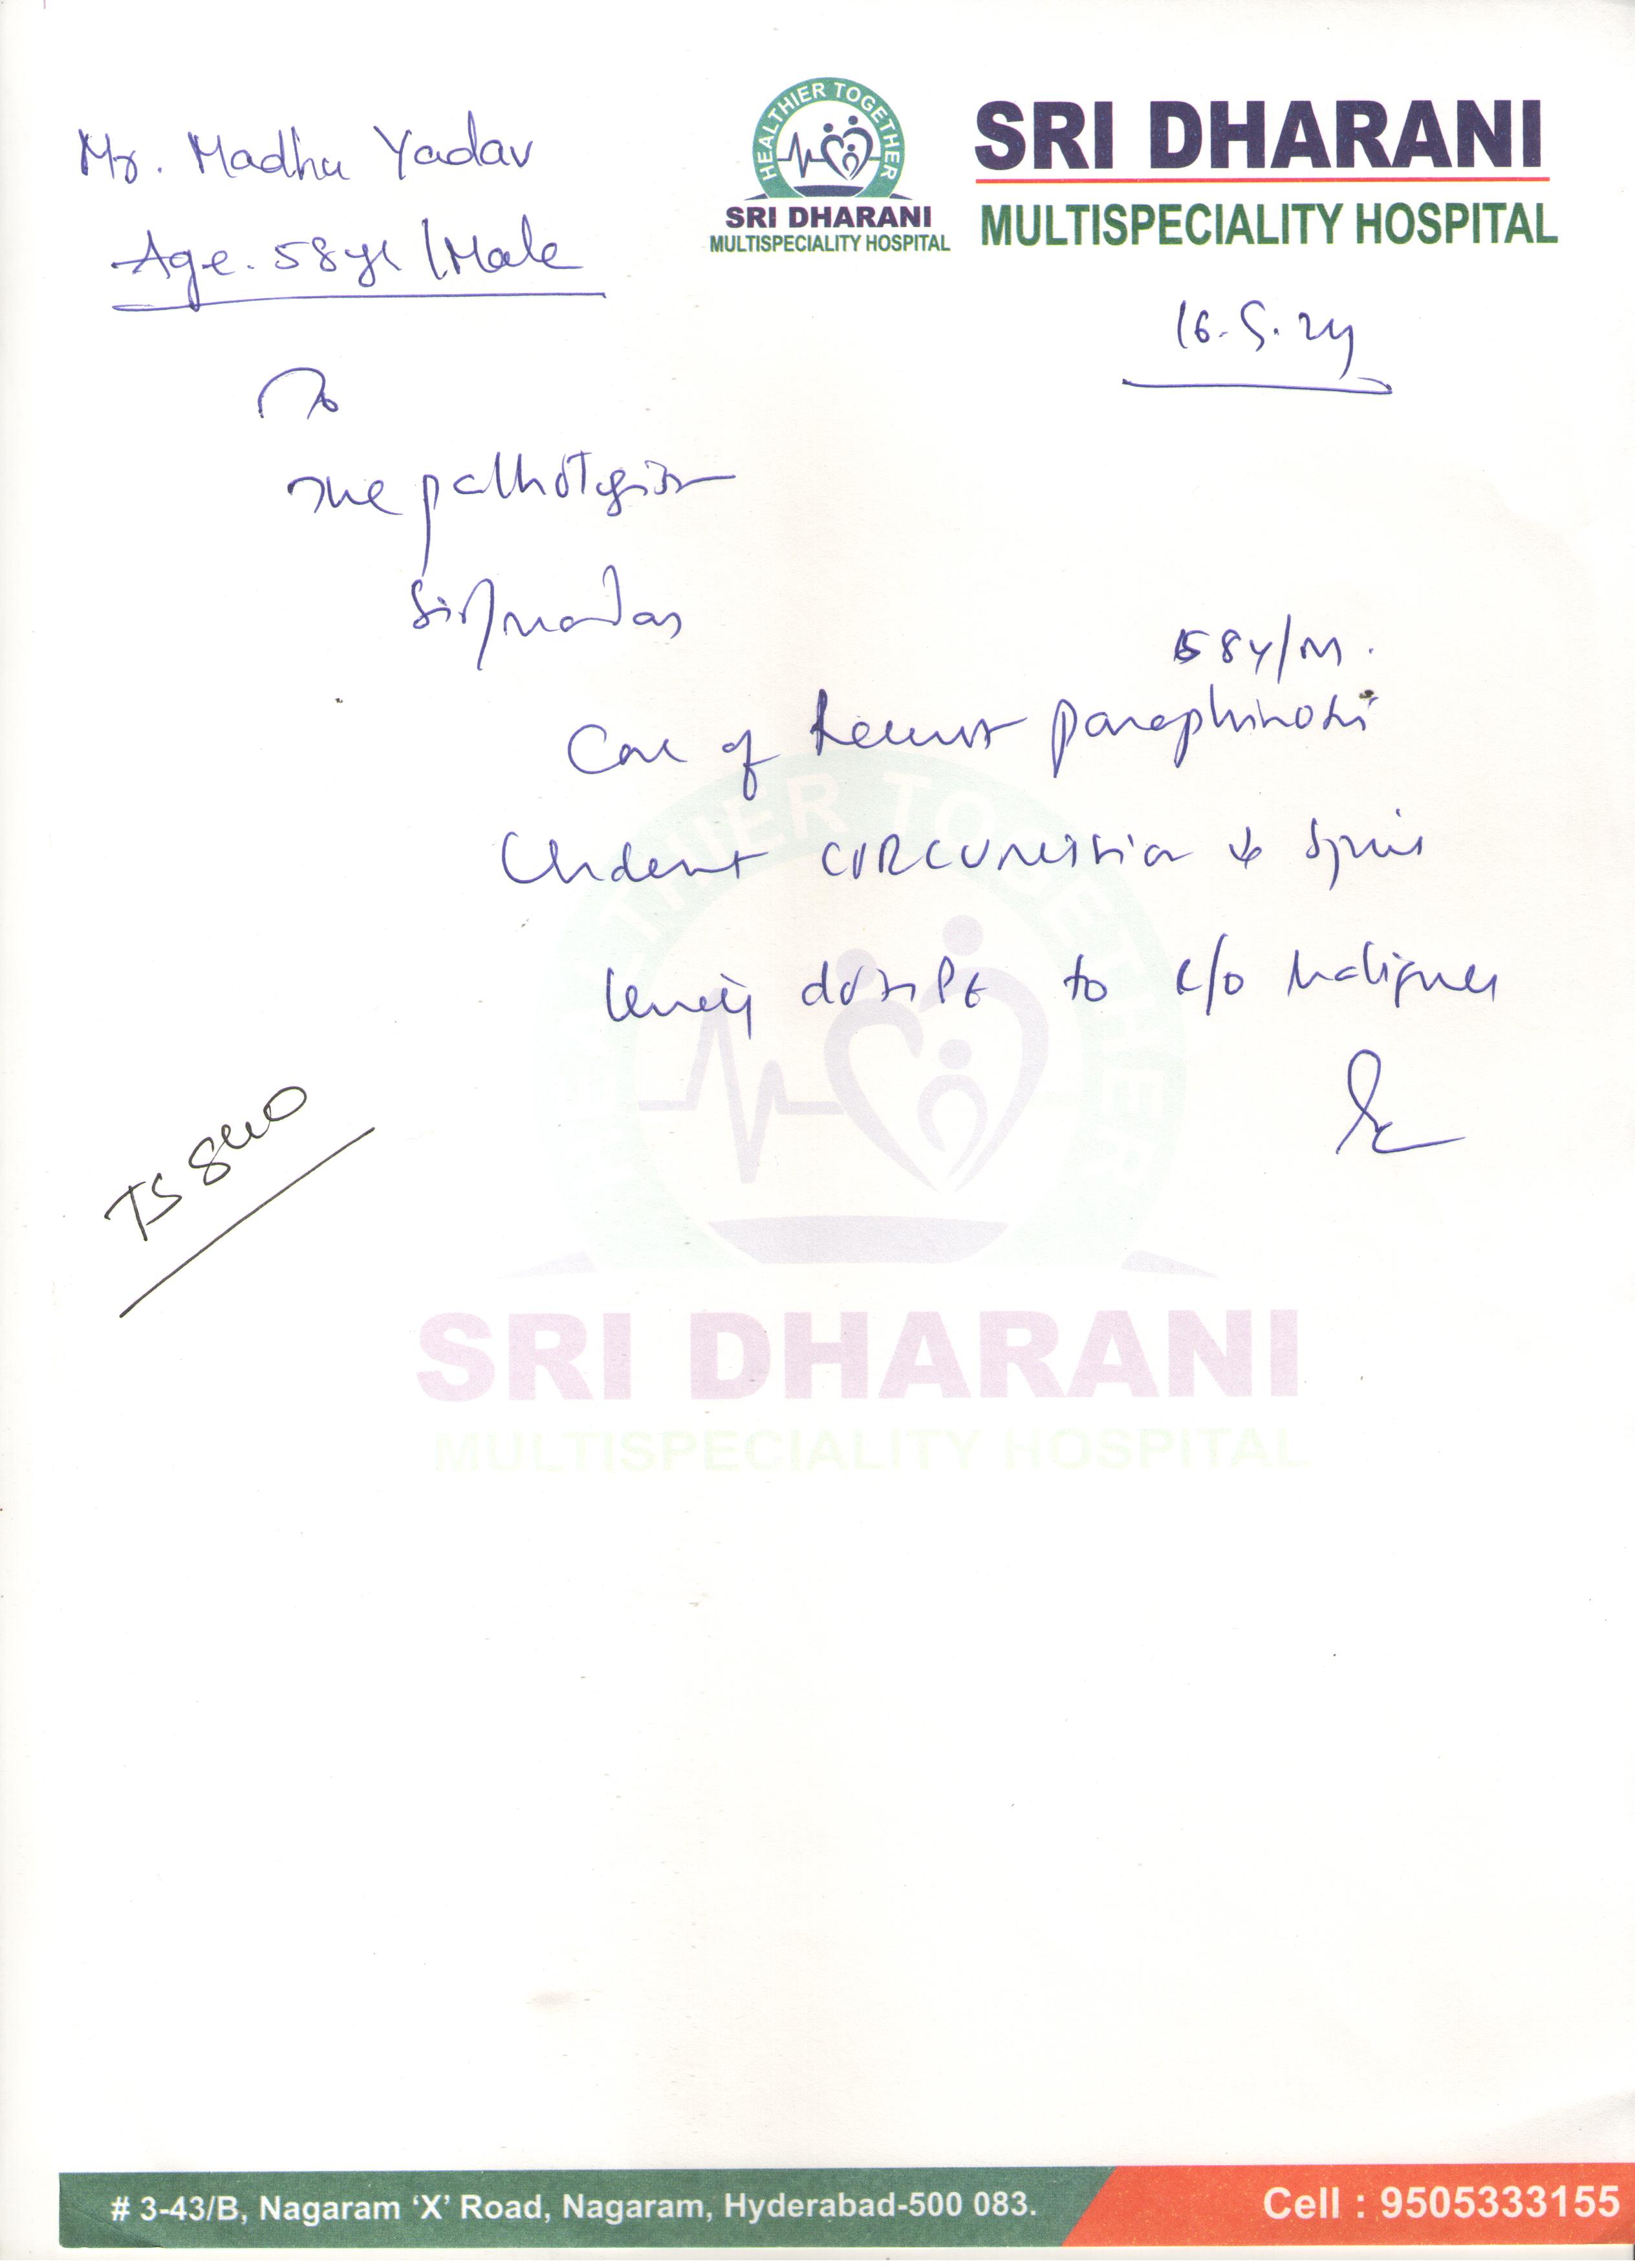 Mr. Madhu Yadav
Age. 58yr/Male
HEALTHIER TOGETHER
SRI DHARANI
MULTISPECIALITY HOSPITAL
SRI DHARANI
MULTISPECIALITY HOSPITAL
16.5.24
To
The pathologist
Sir/madam
58Y/M.
Case of Recurrent paraphimosis
Underwent CIRCUMCISION &
to r/o
TS 8440
HEALTHIER TOGETHER
SRI DHARANI
MULTISPECIALITY HOSPITAL
# 3-43/B, Nagaram ‘X’ Road, Nagaram, Hyderabad-500 083.
Cell : 9505333155